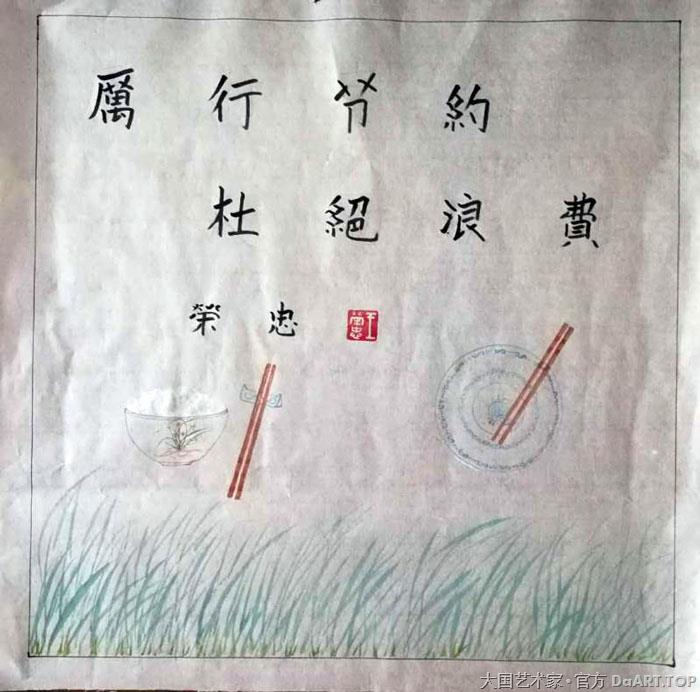 厲行节約
杜絕浪費
榮忠
王榮忠
大国艺术家·官方 DaART.TOP